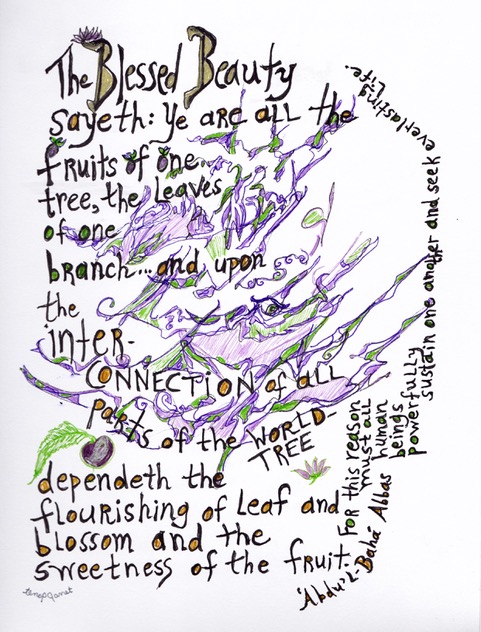 The Blessed Beauty
sayeth: Ye are all the
fruits of one
tree, the leaves
of one
branch... and upon
the
inter-
connection of all
parts of the world-
tree
dependeth the
flourishing of leaf and
blossom and the
sweetness of the fruit.
For this reason
must all
human
beings
powerfully
sustain one another and seek everlasting
Life.
'Abdu'l-Bahá Abbas